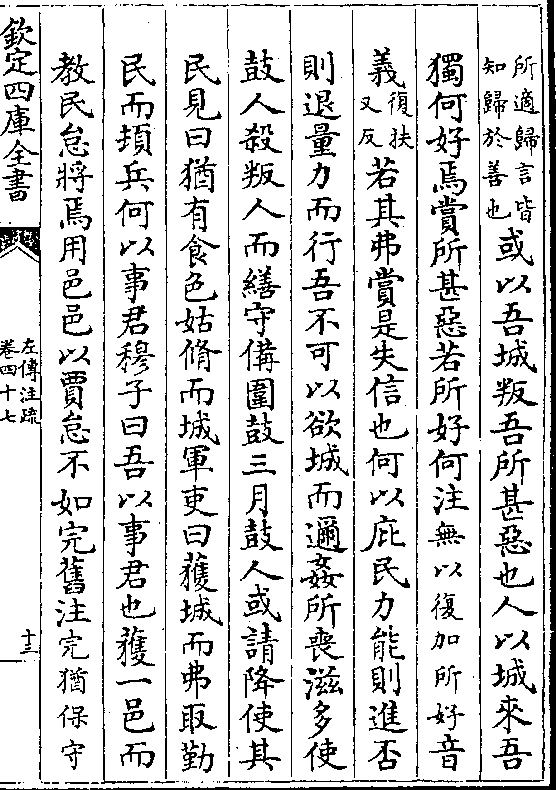 所適歸言皆
知歸於善也
或以吾城叛吾所甚惡也人以城來吾
獨何好焉賞所甚惡若所好何注無以復加所好音
義
復扶
又反
若其弗賞是失信也何以庇民力能則進否
則退量力而行吾不可以欲城而邇姦所喪滋多使
鼓人殺叛人而繕守備圍鼓三月鼓人或請降使其
民見曰猶有食色姑脩而城軍吏曰獲城而弗取勤
民而頓兵何以事君穆子曰吾以事君也獲一邑而
教民怠將焉用邑邑以賈怠不如完舊注完猶保守
欽定四庫全書
左傳注疏
卷四十七
十三